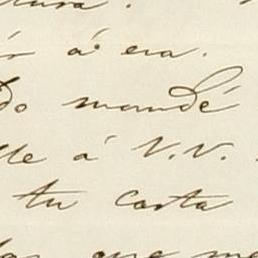 á era.
do mandé
lle á V. V.
tu carta
que me